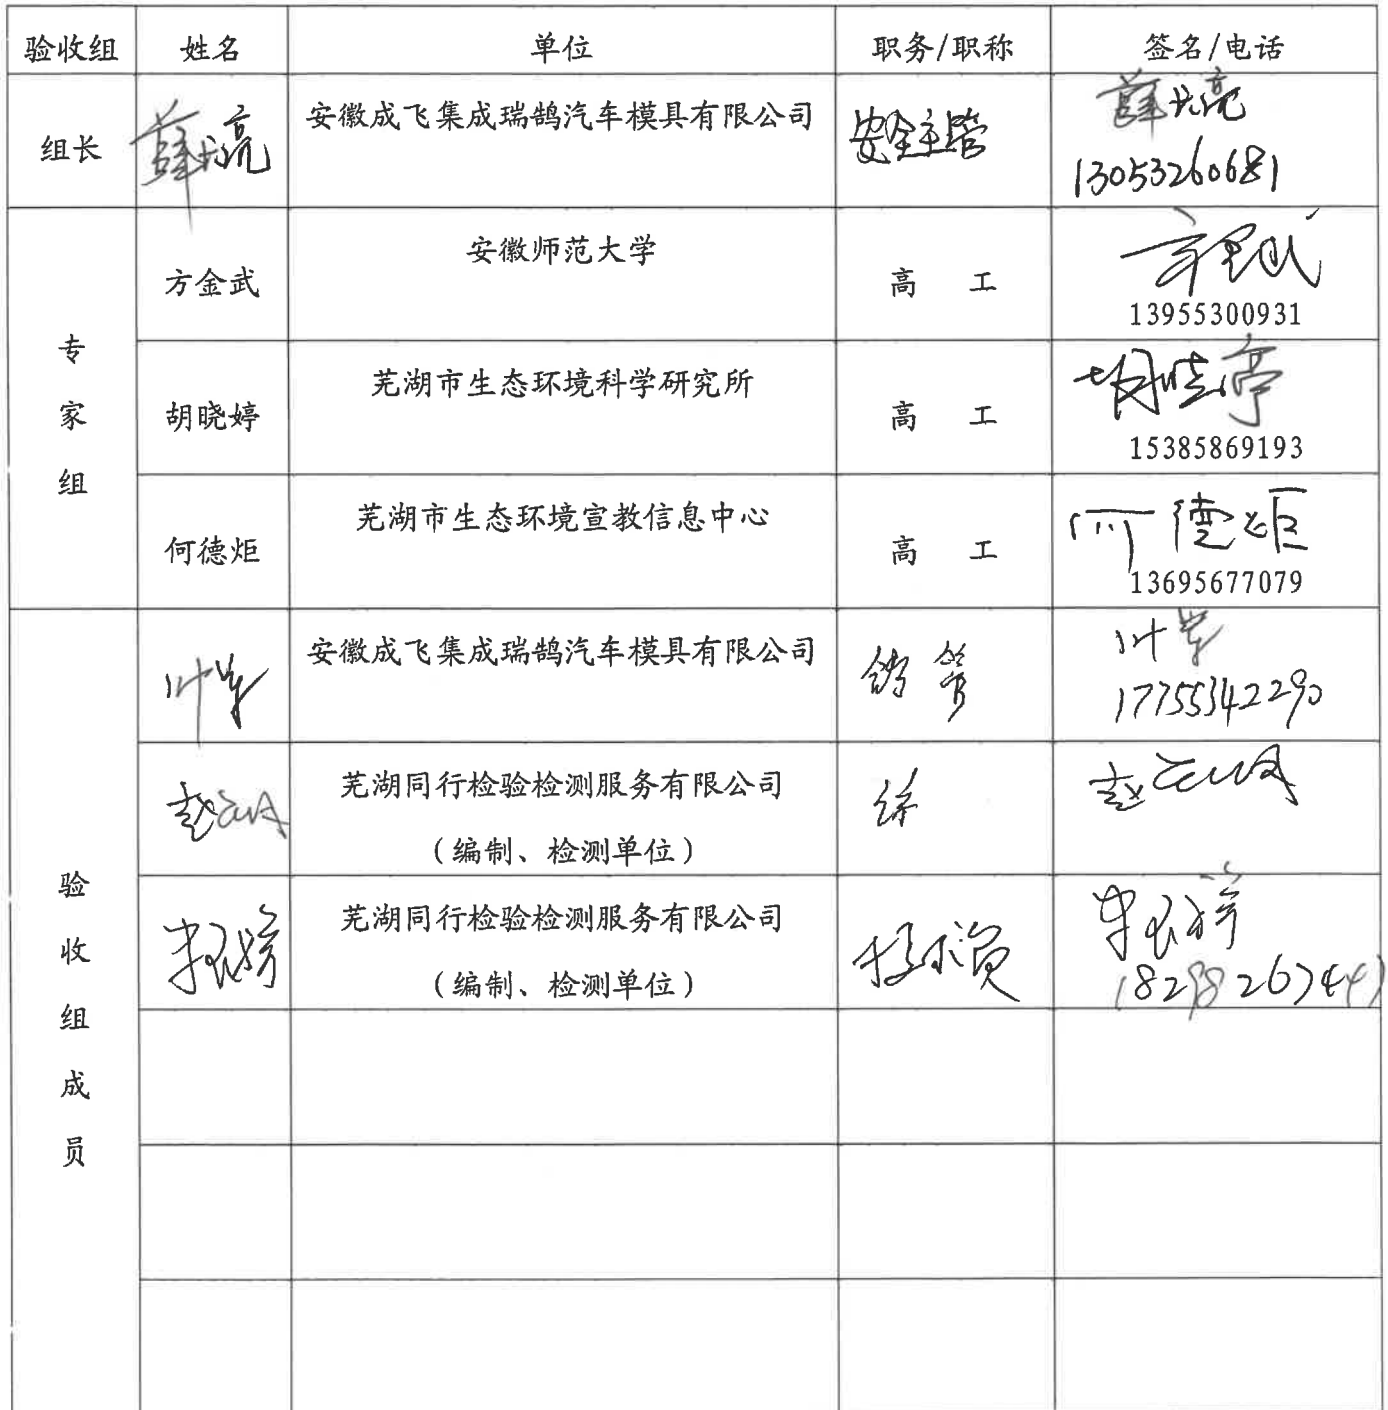 验收组 姓名 单位 职务/职称 签名/电话
组长 薛长亮 安徽成飞集成瑞鹄汽车模具有限公司 安全主管 薛长亮
13053260681
专家组
方金武 安徽师范大学 高 工 方金武
13955300931
胡晓婷 芜湖市生态环境科学研究所 高 工 胡晓婷
15385869193
何德炬 芜湖市生态环境宣教信息中心 高 工 何德炬
13695677079
验收组成员
叶军 安徽成飞集成瑞鹄汽车模具有限公司 叶军
17755342290
芜湖同行检验检测服务有限公司
（编制、检测单位）
芜湖同行检验检测服务有限公司 技术员
（编制、检测单位）